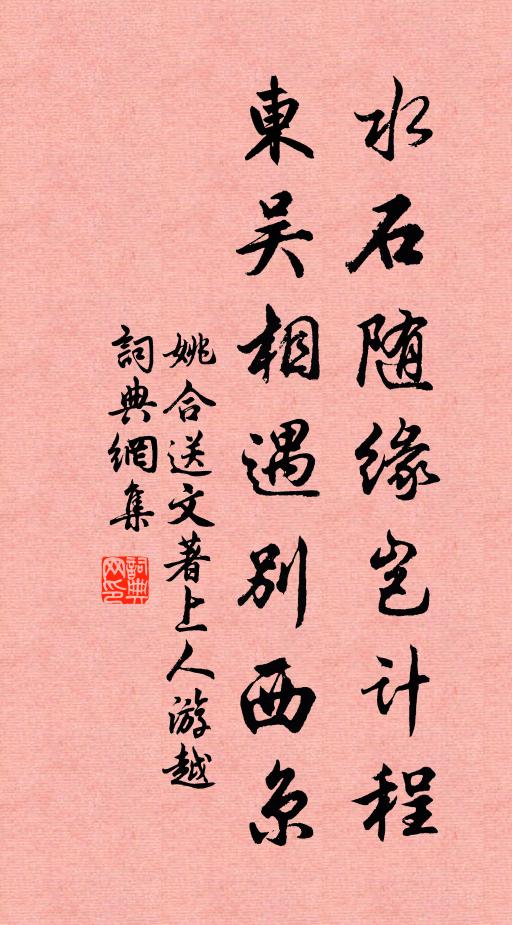 水石随緣岂計程
東吴相遇别西京
姚合送文著上人游越
詞典網集
詞典网印